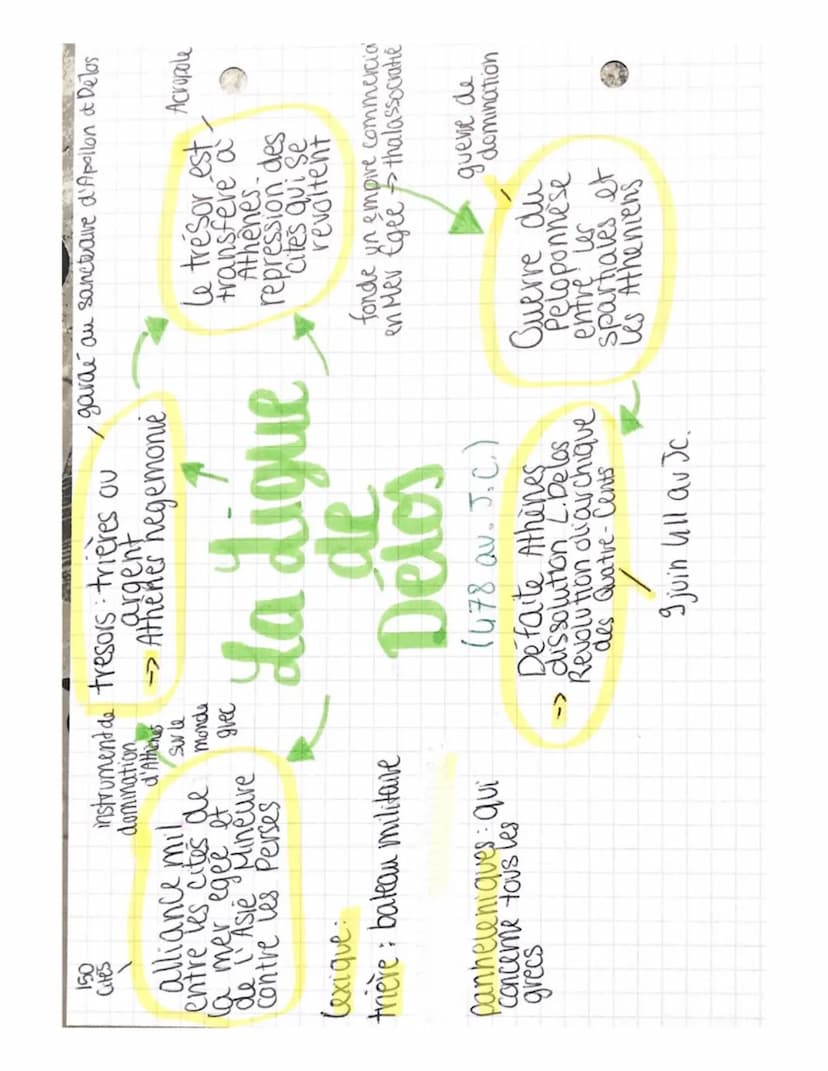 150
cités
alliance mil
entre les cités de
la mer egée et
de l'Asie Mineure
contre les Perses
instrument de
domination
d'Athènes
sur le
monde
grec
tresors : trières ou
argent
-> Athènes hegemonie
gardé au sanctuaire d'Apollon à Délos
Le trésor est
transféré à
Athènes.
repression des
cités qui se
revoltent
Acropole
fonde un empire commercial
en Mer Egée -> thalassocratie
La Ligue
de
Délos
(478 av. J.C.)
guerre de
domination
Guerre du
Peloponnèse
entre les
spartiates et
les Atheniens
-> Défaite Athènes
dissolution L. Delos
Revolution oliarchique
des Quatre-Cents
9 juin 411 av Jc.
Lexique :
trière : bateau militaire
panheleniques : qui
concerne tous les
grecs